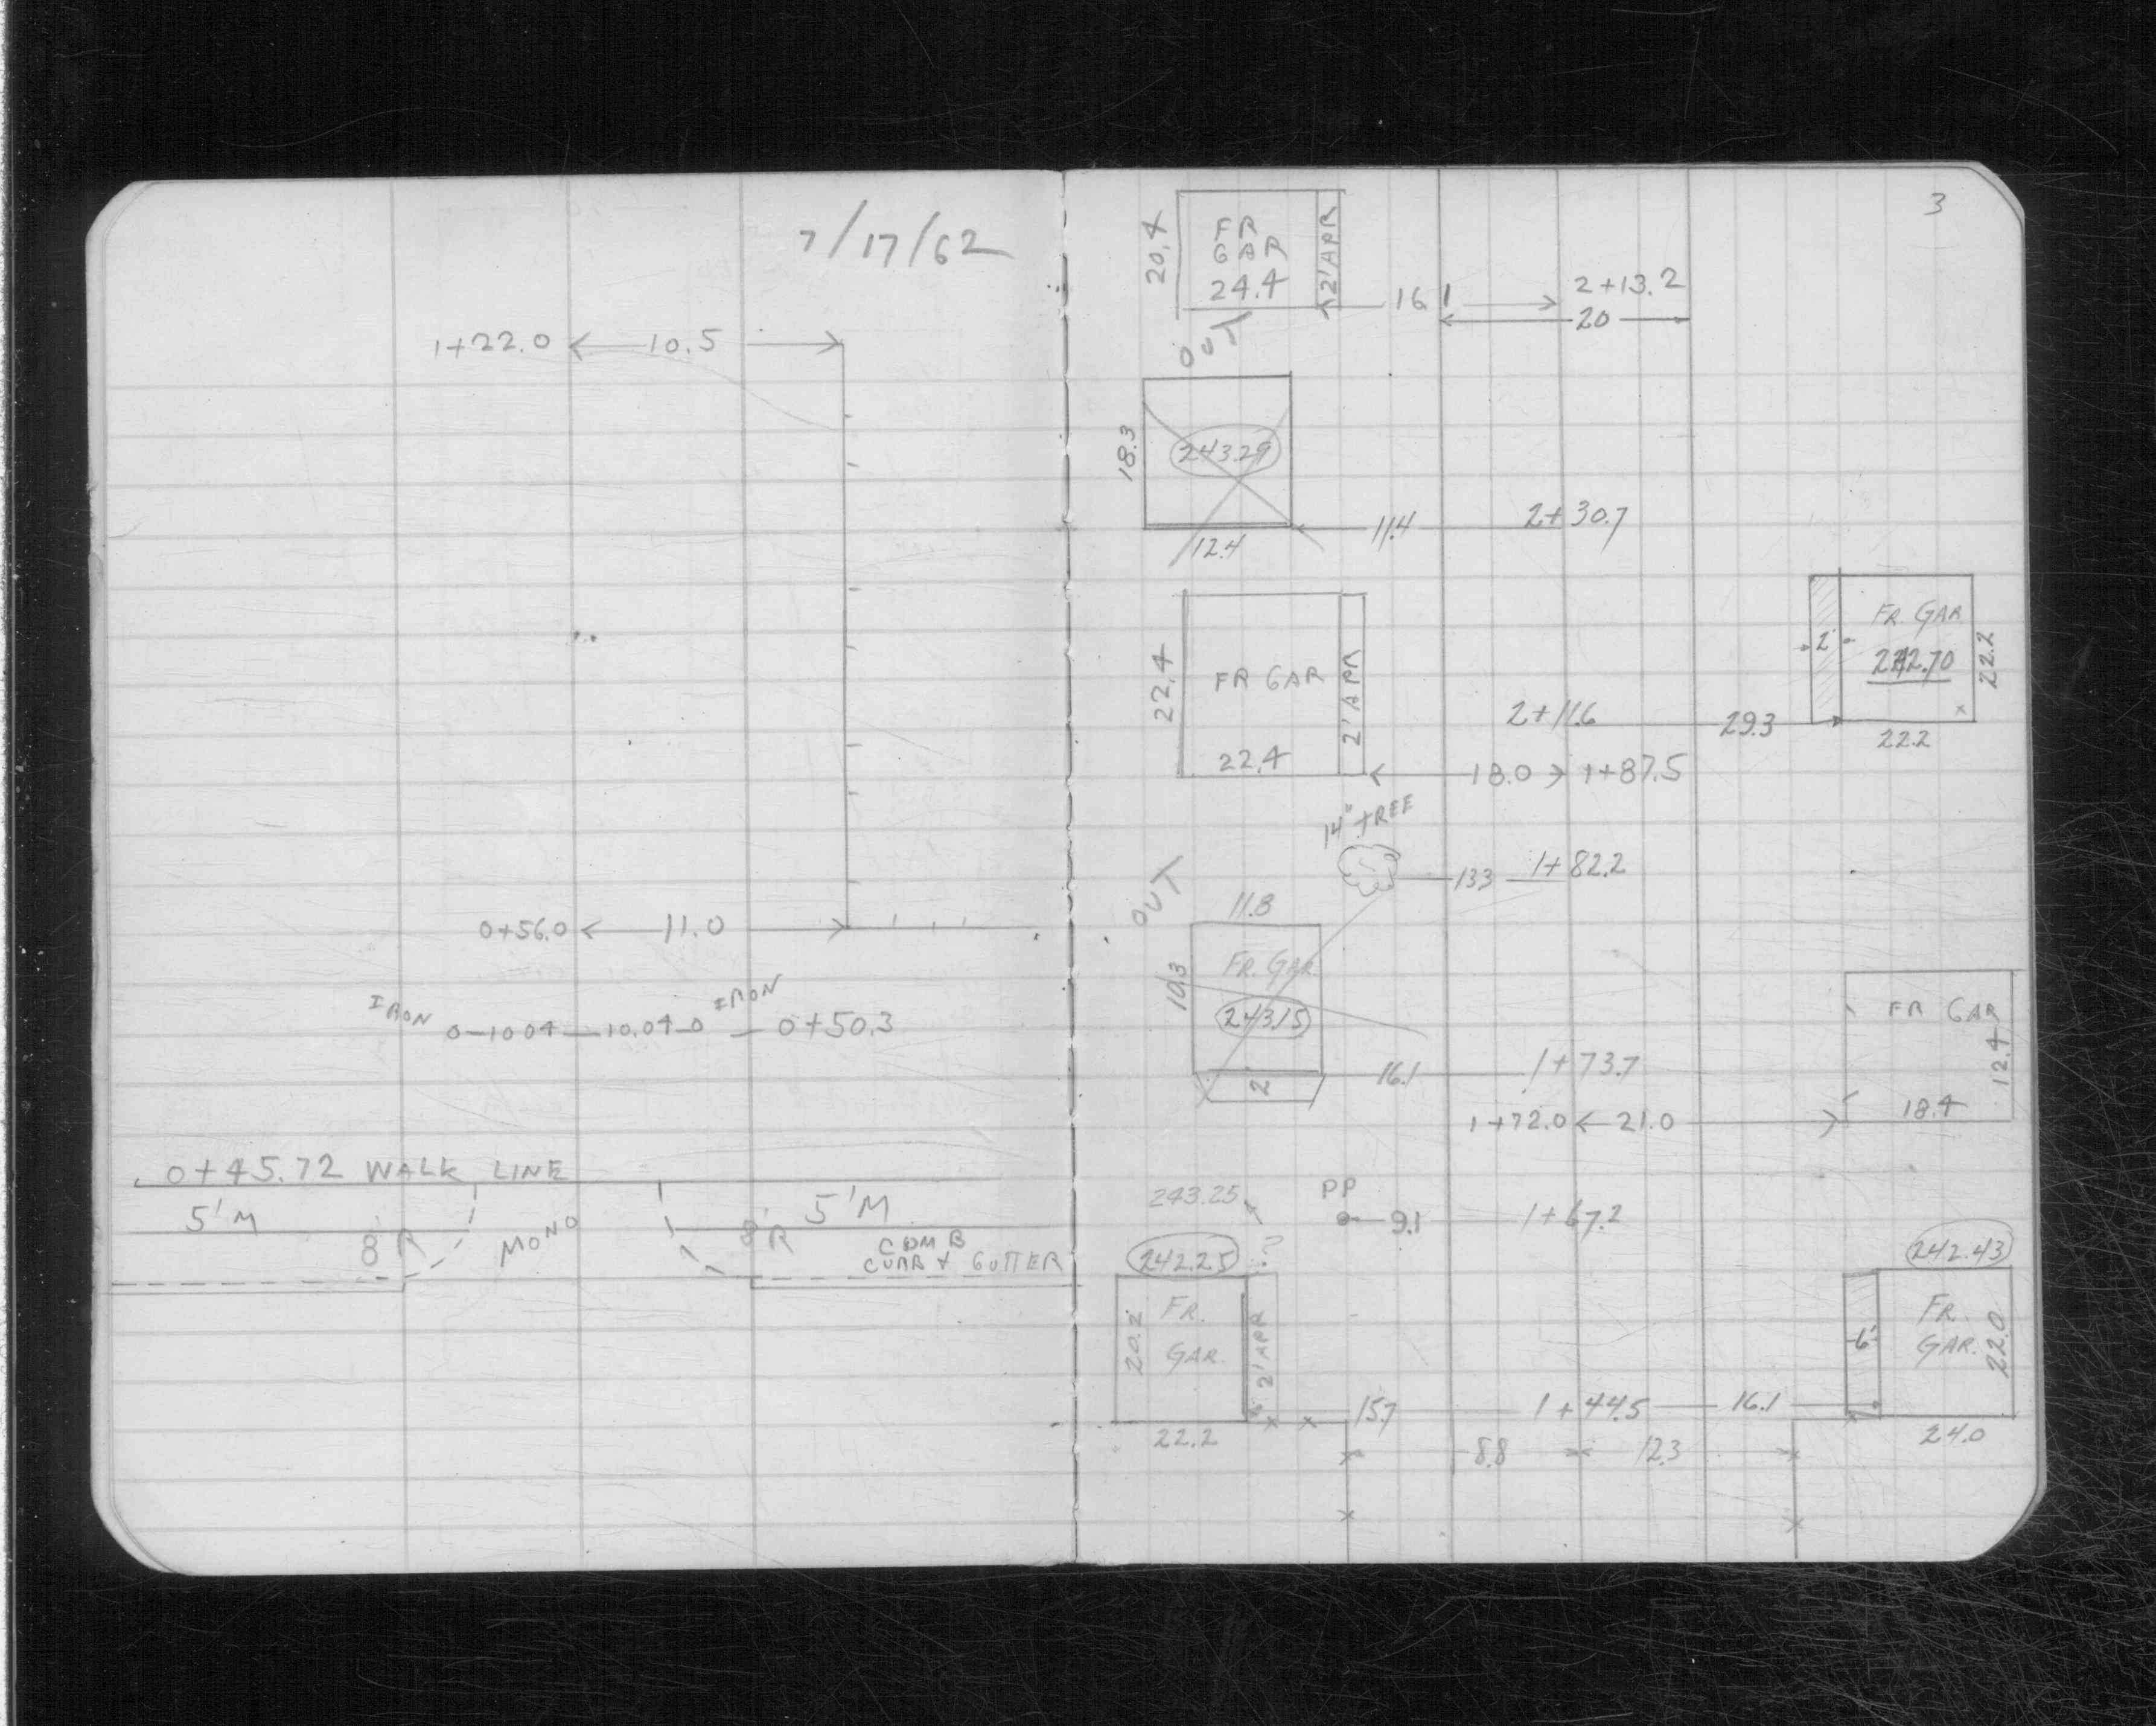 7/17/62
1+22.0 10.5
0+56.0 11.0
IRON 0-10.04 10.04-0 IRON 0+50.3
0+45.72 WALK LINE
5'M 8'R MONO 8'R 5'M
COMB
CURB & GUTTER
3
20.4
FR
GAR
24.4
2'APR
16.1
2+13.2
20
OUT
18.3
243.29
11.4 2+30.7
12.4
22.4
FR GAR
22.4
2' APR
2'
FR. GAR
242.70
22.2
2+11.6 29.3
22.2
18.0 1+87.5
14" TREE
13.3 1+82.2
OUT
11.8
FR. GAR
243.15
2
16.1 1+73.7
FR GAR
12.4
18.4
1+72.0 21.0
243.25
PP
9.1 1+67.2
242.25 ?
242.43
20.2
FR.
GAR.
2'APR
6'
FR.
GAR.
22.0
15.7 1+44.5 16.1
22.2
24.0
8.8 12.3